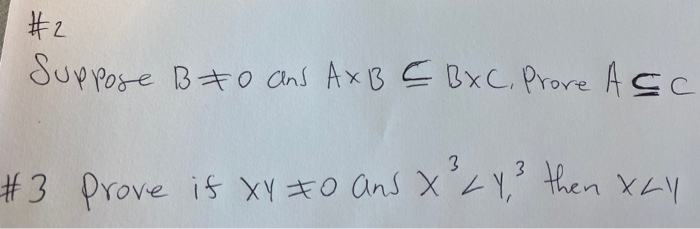 #2
Suppose B≠0 ans A×B ⊆ B×C. Prove A ⊆ C
#3 Prove if XY≠0 ans X³<Y,³ then X<Y